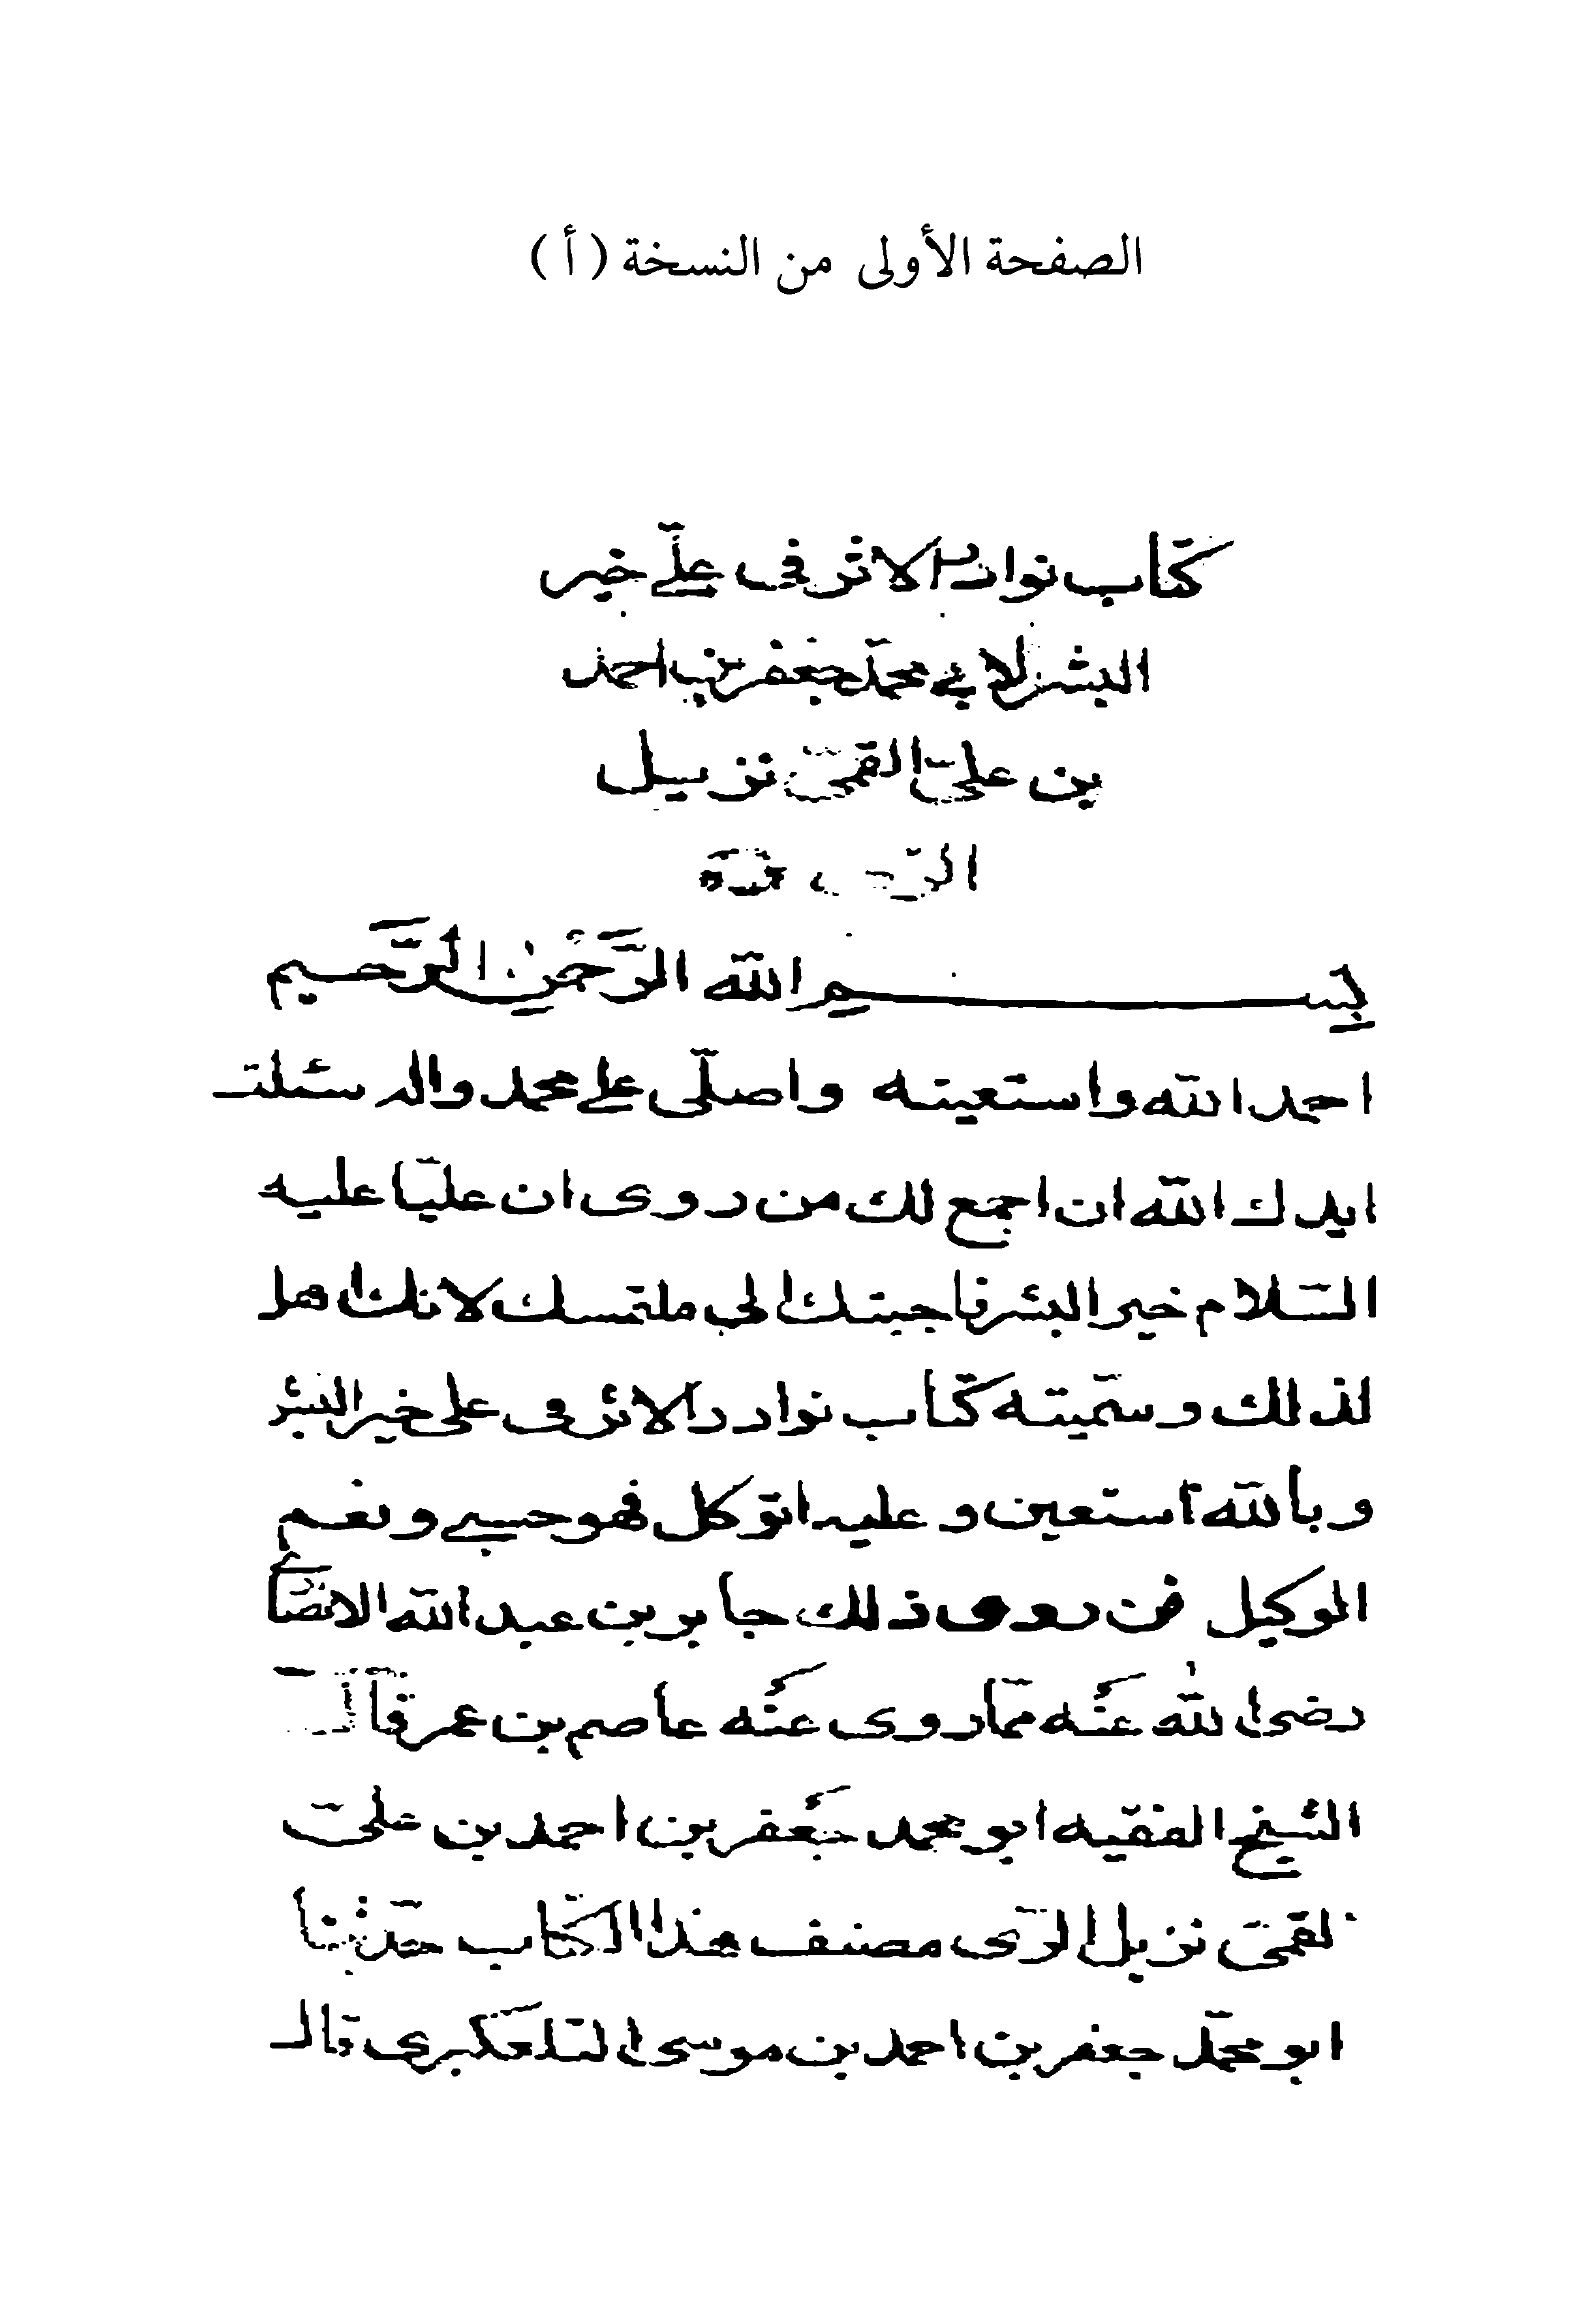 الصفحة الأولى من النسخة (أ)
كتاب نوادر الاثر فى علىّ خير
البشر لابي محمّد جعفر بن احمد
بن علىّ القمىّ نزيل
بسم الله الرَّحْمٰن الرَّحيم
احمد الله واستعينه واصلّى على محمد واله سئلت
ايدك الله ان اجمع لك من روى ان عليّا عليه
السّلام خير البشر فاجبتك الى ملتمسك لانك اهل
لذلك وسمّيته كتاب نوادر الاثر فى على خير البشر
وبالله استعين وعليه اتوكل فهو حسبي ونعم
الوكيل فمن روى ذلك جابر بن عبد الله الانصارى
رضى الله عَنْه ممّا روى عَنْه عاصم بن عمر قال
الشيخ الفقيه ابو محمد جَعفر بن احمد بن علىّ
لقمىّ نزيل الرّى مصنف هذا الكتاب حدّثنا
ابو محمّد جعفر بن احمد بن موسى التلعكبرى قال